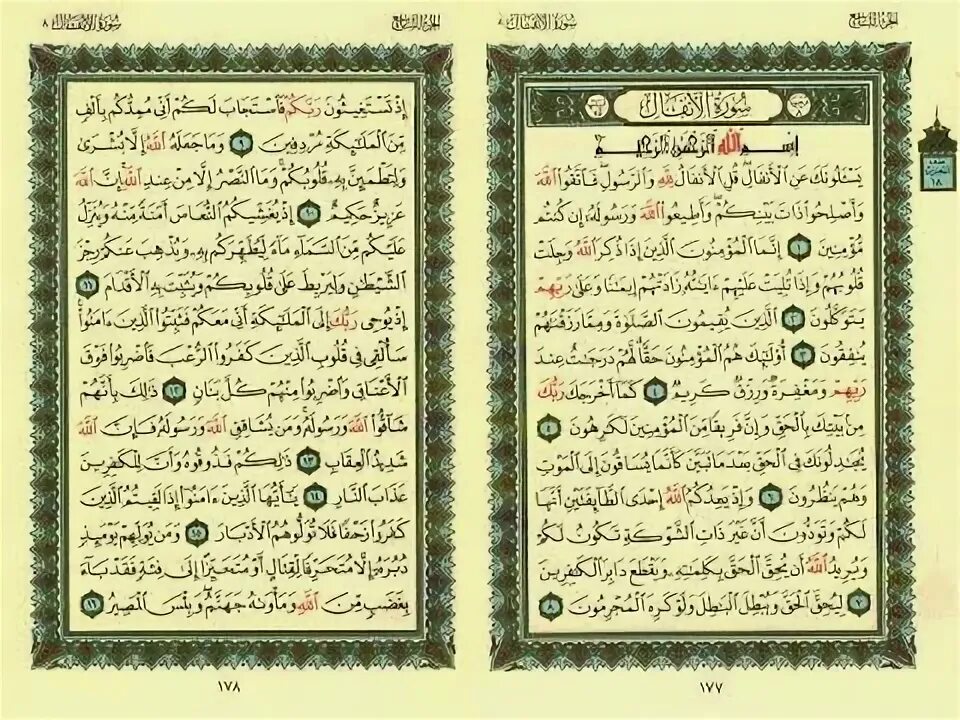 الجزء التاسع
سورة الأنفال
سُورَةُ الأَنفَالِ
بِسْمِ اللَّهِ الرَّحْمَٰنِ الرَّحِيمِ
يَسْـَٔلُونَكَ عَنِ الْأَنفَالِ قُلِ الْأَنفَالُ لِلَّهِ وَالرَّسُولِ فَاتَّقُوا اللَّهَ
وَأَصْلِحُوا ذَاتَ بَيْنِكُمْ وَأَطِيعُوا اللَّهَ وَرَسُولَهُ إِن كُنتُم
مُّؤْمِنِينَ ١ إِنَّمَا الْمُؤْمِنُونَ الَّذِينَ إِذَا ذُكِرَ اللَّهُ وَجِلَتْ
قُلُوبُهُمْ وَإِذَا تُلِيَتْ عَلَيْهِمْ ءَايَٰتُهُ زَادَتْهُمْ إِيمَٰنًا وَعَلَىٰ رَبِّهِمْ
يَتَوَكَّلُونَ ٢ الَّذِينَ يُقِيمُونَ الصَّلَوٰةَ وَمِمَّا رَزَقْنَٰهُمْ
يُنفِقُونَ ٣ أُولَٰئِكَ هُمُ الْمُؤْمِنُونَ حَقًّا لَّهُمْ دَرَجَٰتٌ عِندَ
رَبِّهِمْ وَمَغْفِرَةٌ وَرِزْقٌ كَرِيمٌ ٤ كَمَا أَخْرَجَكَ رَبُّكَ
مِن بَيْتِكَ بِالْحَقِّ وَإِنَّ فَرِيقًا مِّنَ الْمُؤْمِنِينَ لَكَٰرِهُونَ ٥
يُجَٰدِلُونَكَ فِي الْحَقِّ بَعْدَ مَا تَبَيَّنَ كَأَنَّمَا يُسَاقُونَ إِلَى الْمَوْتِ
وَهُمْ يَنظُرُونَ ٦ وَإِذْ يَعِدُكُمُ اللَّهُ إِحْدَى الطَّائِفَتَيْنِ أَنَّهَا
لَكُمْ وَتَوَدُّونَ أَنَّ غَيْرَ ذَاتِ الشَّوْكَةِ تَكُونُ لَكُمْ
وَيُرِيدُ اللَّهُ أَن يُحِقَّ الْحَقَّ بِكَلِمَٰتِهِ وَيَقْطَعَ دَابِرَ الْكَٰفِرِينَ
٧ لِيُحِقَّ الْحَقَّ وَيُبْطِلَ الْبَٰطِلَ وَلَوْ كَرِهَ الْمُجْرِمُونَ ٨
١٧٧
الجزء التاسع
سورة الأنفال ٨
إِذْ تَسْتَغِيثُونَ رَبَّكُمْ فَاسْتَجَابَ لَكُمْ أَنِّي مُمِدُّكُم بِأَلْفٍ
مِّنَ الْمَلَٰئِكَةِ مُرْدِفِينَ ٩ وَمَا جَعَلَهُ اللَّهُ إِلَّا بُشْرَىٰ
وَلِتَطْمَئِنَّ بِهِ قُلُوبُكُمْ وَمَا النَّصْرُ إِلَّا مِنْ عِندِ اللَّهِ إِنَّ اللَّهَ
عَزِيزٌ حَكِيمٌ ١٠ إِذْ يُغَشِّيكُمُ النُّعَاسَ أَمَنَةً مِّنْهُ وَيُنَزِّلُ
عَلَيْكُم مِّنَ السَّمَاءِ مَاءً لِّيُطَهِّرَكُم بِهِ وَيُذْهِبَ عَنكُمْ رِجْزَ
الشَّيْطَٰنِ وَلِيَرْبِطَ عَلَىٰ قُلُوبِكُمْ وَيُثَبِّتَ بِهِ الْأَقْدَامَ ١١
إِذْ يُوحِي رَبُّكَ إِلَى الْمَلَٰئِكَةِ أَنِّي مَعَكُمْ فَثَبِّتُوا الَّذِينَ ءَامَنُوا
سَأُلْقِي فِي قُلُوبِ الَّذِينَ كَفَرُوا الرُّعْبَ فَاضْرِبُوا فَوْقَ
الْأَعْنَاقِ وَاضْرِبُوا مِنْهُمْ كُلَّ بَنَانٍ ١٢ ذَٰلِكَ بِأَنَّهُمْ
شَاقُّوا اللَّهَ وَرَسُولَهُ وَمَن يُشَاقِقِ اللَّهَ وَرَسُولَهُ فَإِنَّ اللَّهَ
شَدِيدُ الْعِقَابِ ١٣ ذَٰلِكُمْ فَذُوقُوهُ وَأَنَّ لِلْكَٰفِرِينَ
عَذَابَ النَّارِ ١٤ يَٰأَيُّهَا الَّذِينَ ءَامَنُوا إِذَا لَقِيتُمُ الَّذِينَ
كَفَرُوا زَحْفًا فَلَا تُوَلُّوهُمُ الْأَدْبَارَ ١٥ وَمَن يُوَلِّهِمْ يَوْمَئِذٍ
دُبُرَهُ إِلَّا مُتَحَرِّفًا لِّقِتَالٍ أَوْ مُتَحَيِّزًا إِلَىٰ فِئَةٍ فَقَدْ بَاءَ
بِغَضَبٍ مِّنَ اللَّهِ وَمَأْوَىٰهُ جَهَنَّمُ وَبِئْسَ الْمَصِيرُ ١٦
١٧٨